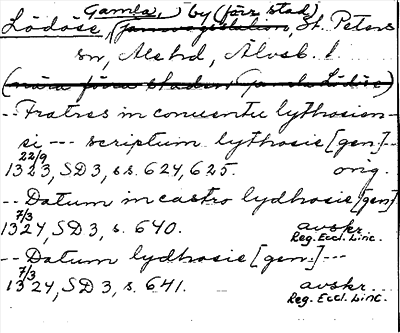 Gamla, by (förr stad)
Lödöse, (järnvägsstation, St. Peters
sn, Ale hd, Älvsb. l
(nära förra staden Gamla Lödöse)
-- Fratres in conuentu lythosien-
si --- scriptum lythosie [gen] --
22/9
1323, SD 3, s.s. 624, 625. orig.
-- Datum in castro lydhosie [gen]
7/3
1324, SD 3, s. 640. avskr.
Reg. Eccl. Linc.
-- Datum lydhosie [gen.] ---
7/3
1324, SD 3, s. 641. avskr.
Reg. Eccl. Linc.